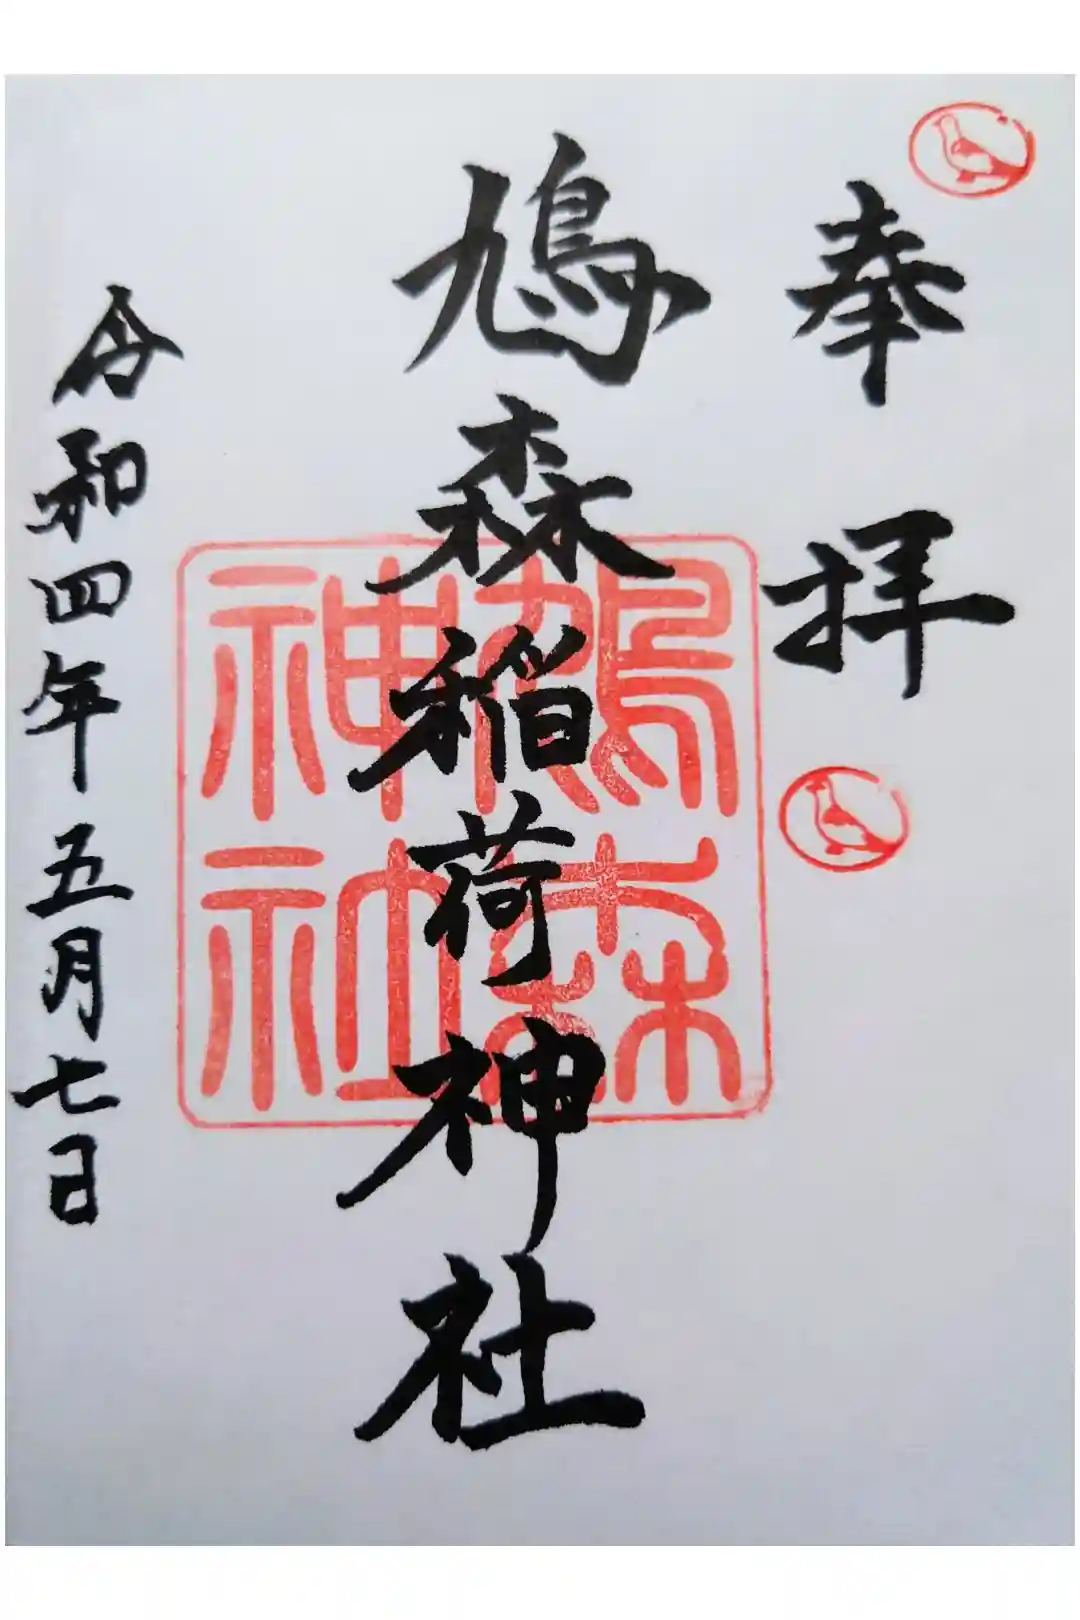 奉拝
鳩森稲荷神社
鳩森神社
令和四年五月七日